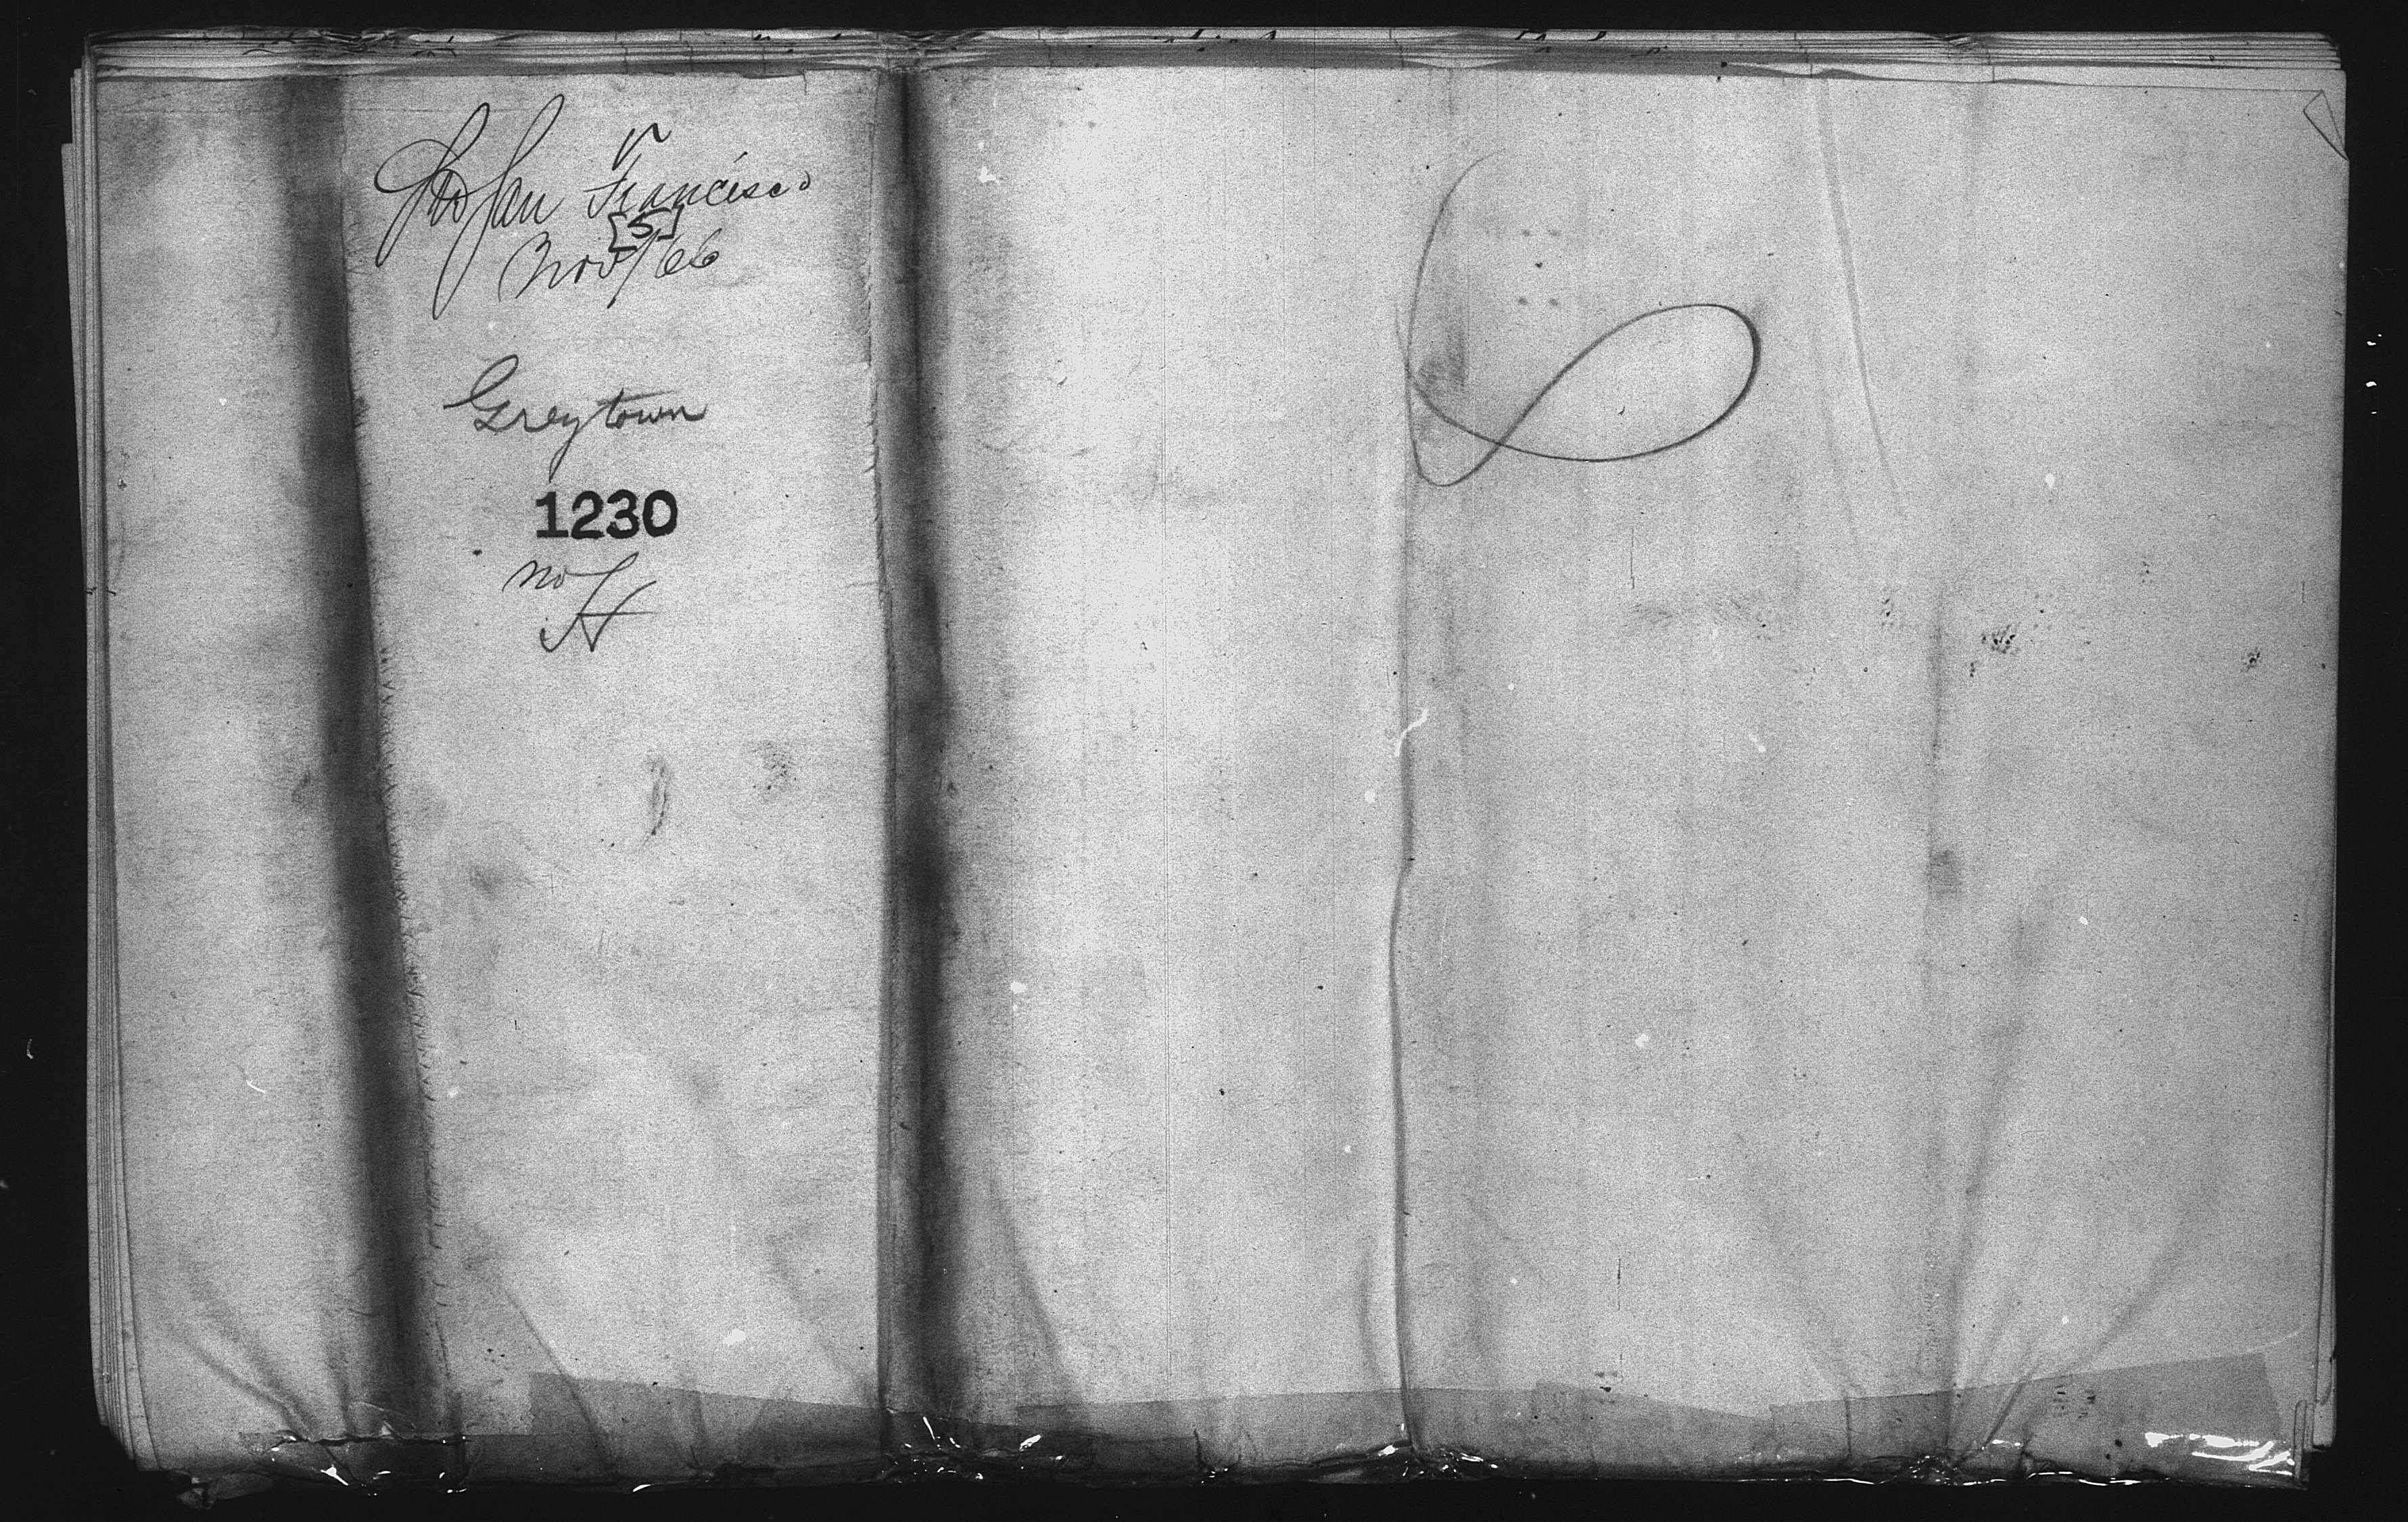 San Francisco
[S]
Nov/66
Greytown
1230
no
H